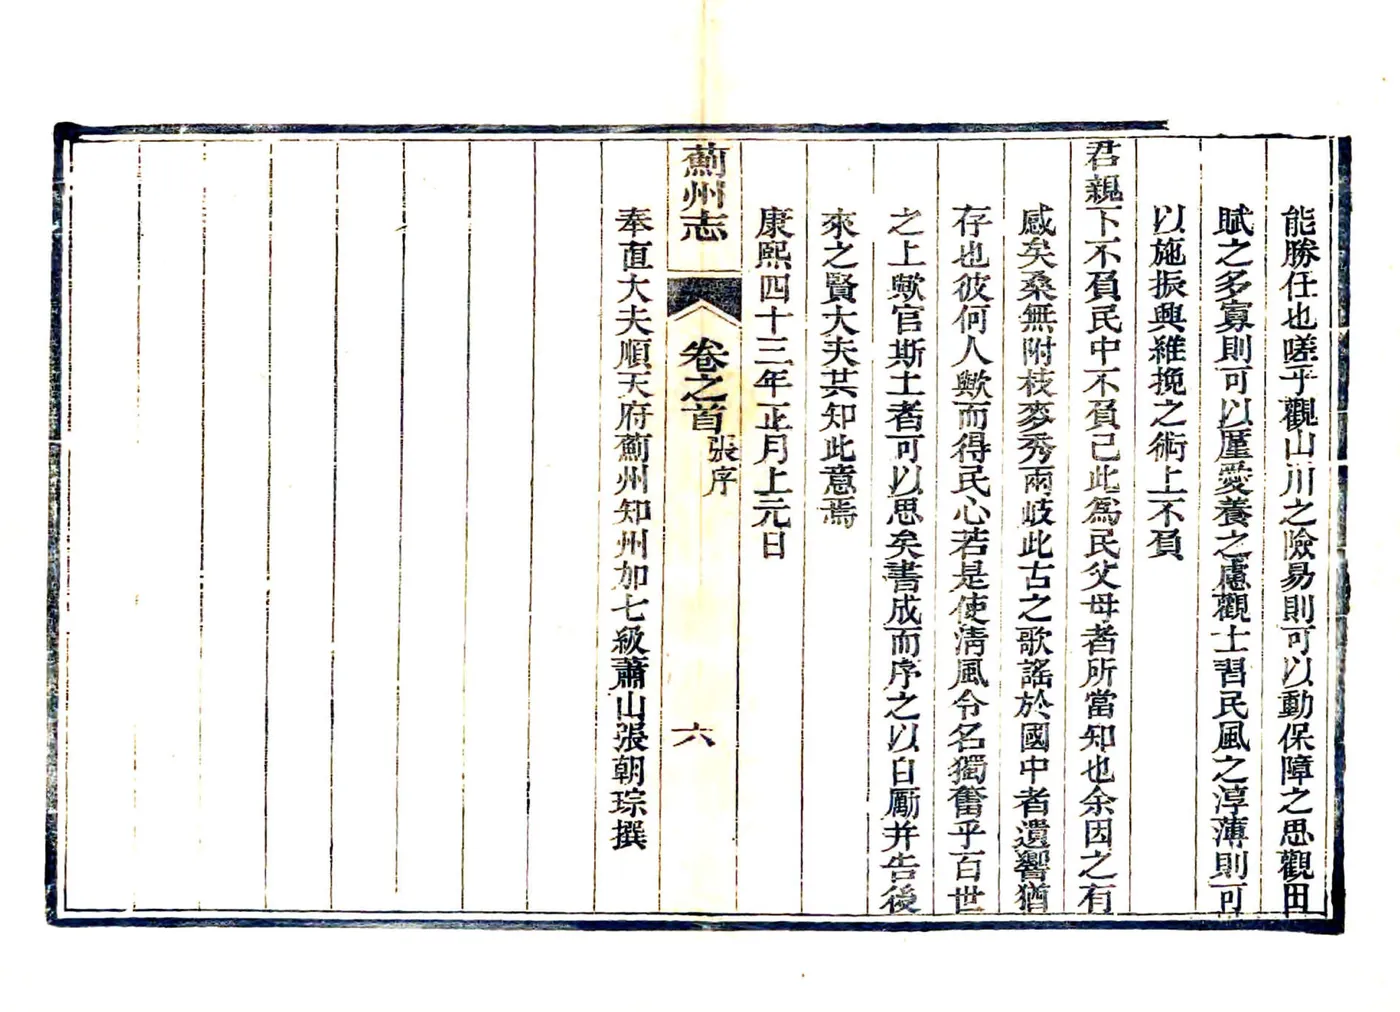 能勝任也嗟乎觀山川之險易則可以動保障之思觀田
賦之多寡則可以厪愛養之慮觀士習民風之淳薄則可
以施振興維挽之術上不負
君親下不負民中不負己此為民父母者所當知也余因之有
感矣桑無附枝麥秀兩岐此古之歌謠於國中者遺響猶
存也彼何人歟而得民心若是使淸風令名獨奮乎百世
之上歟官斯土者可以思矣書成而序之以自勵并告後
來之賢大夫其知此意焉
康熙四十三年正月上元日
薊州志
卷之首
張序
六
奉直大夫順天府薊州知州加七級蕭山張朝琮撰